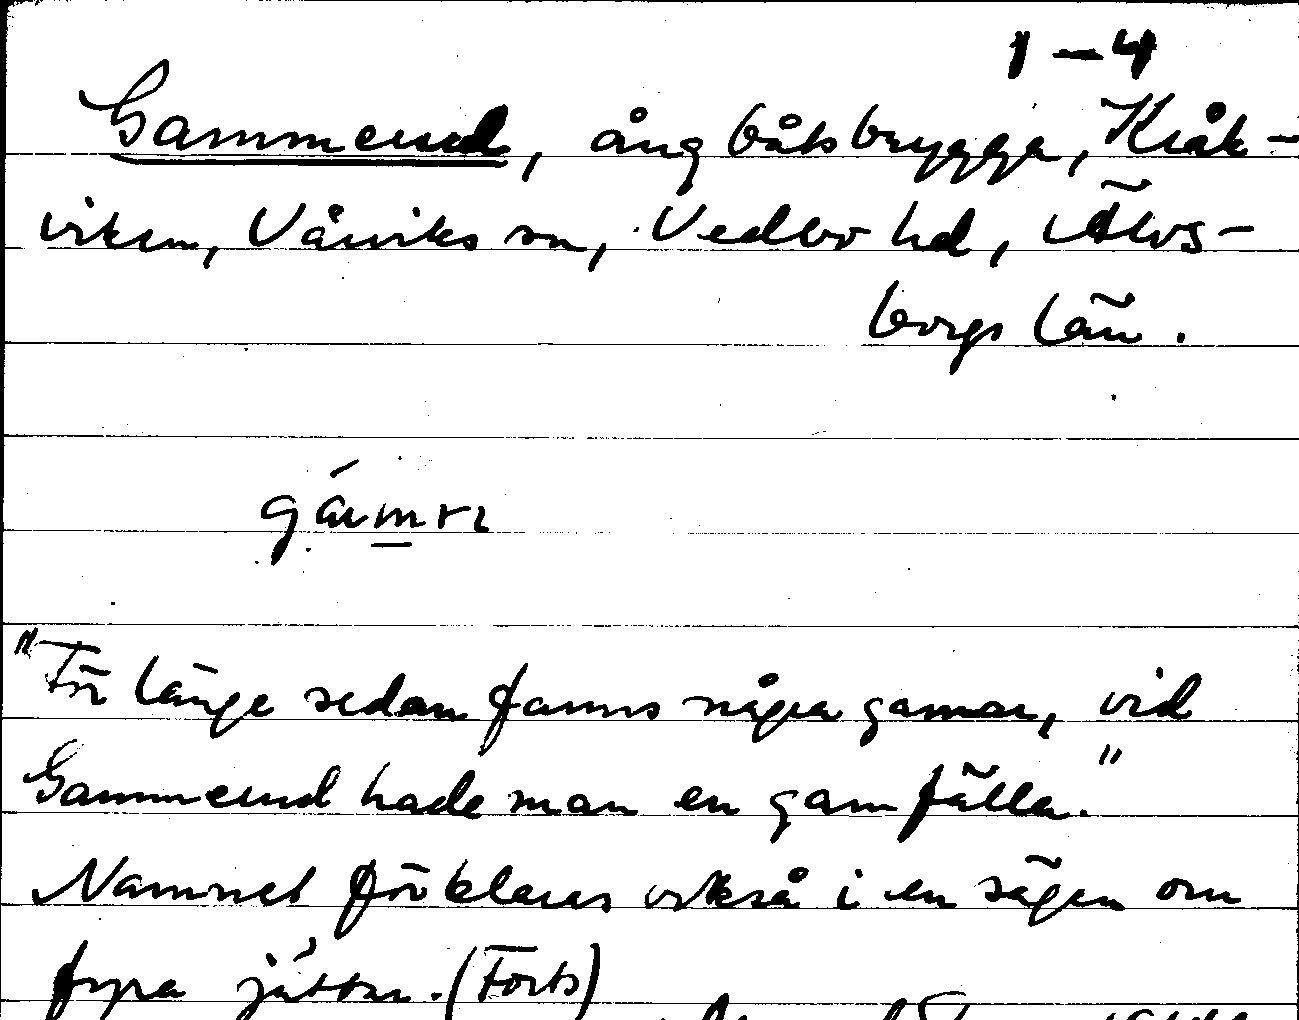 1-4
Gammerud, ångbåtsbrygga, Kråk-
viken, Vårviks sn, Vedbo hd, Älvs-
borgs län.
"För länge sedan fanns några gamar, vid
Gammerud hade man en gamfälla."
Namnet förklaras också i en sägen om
fyra jättar. (Forts)